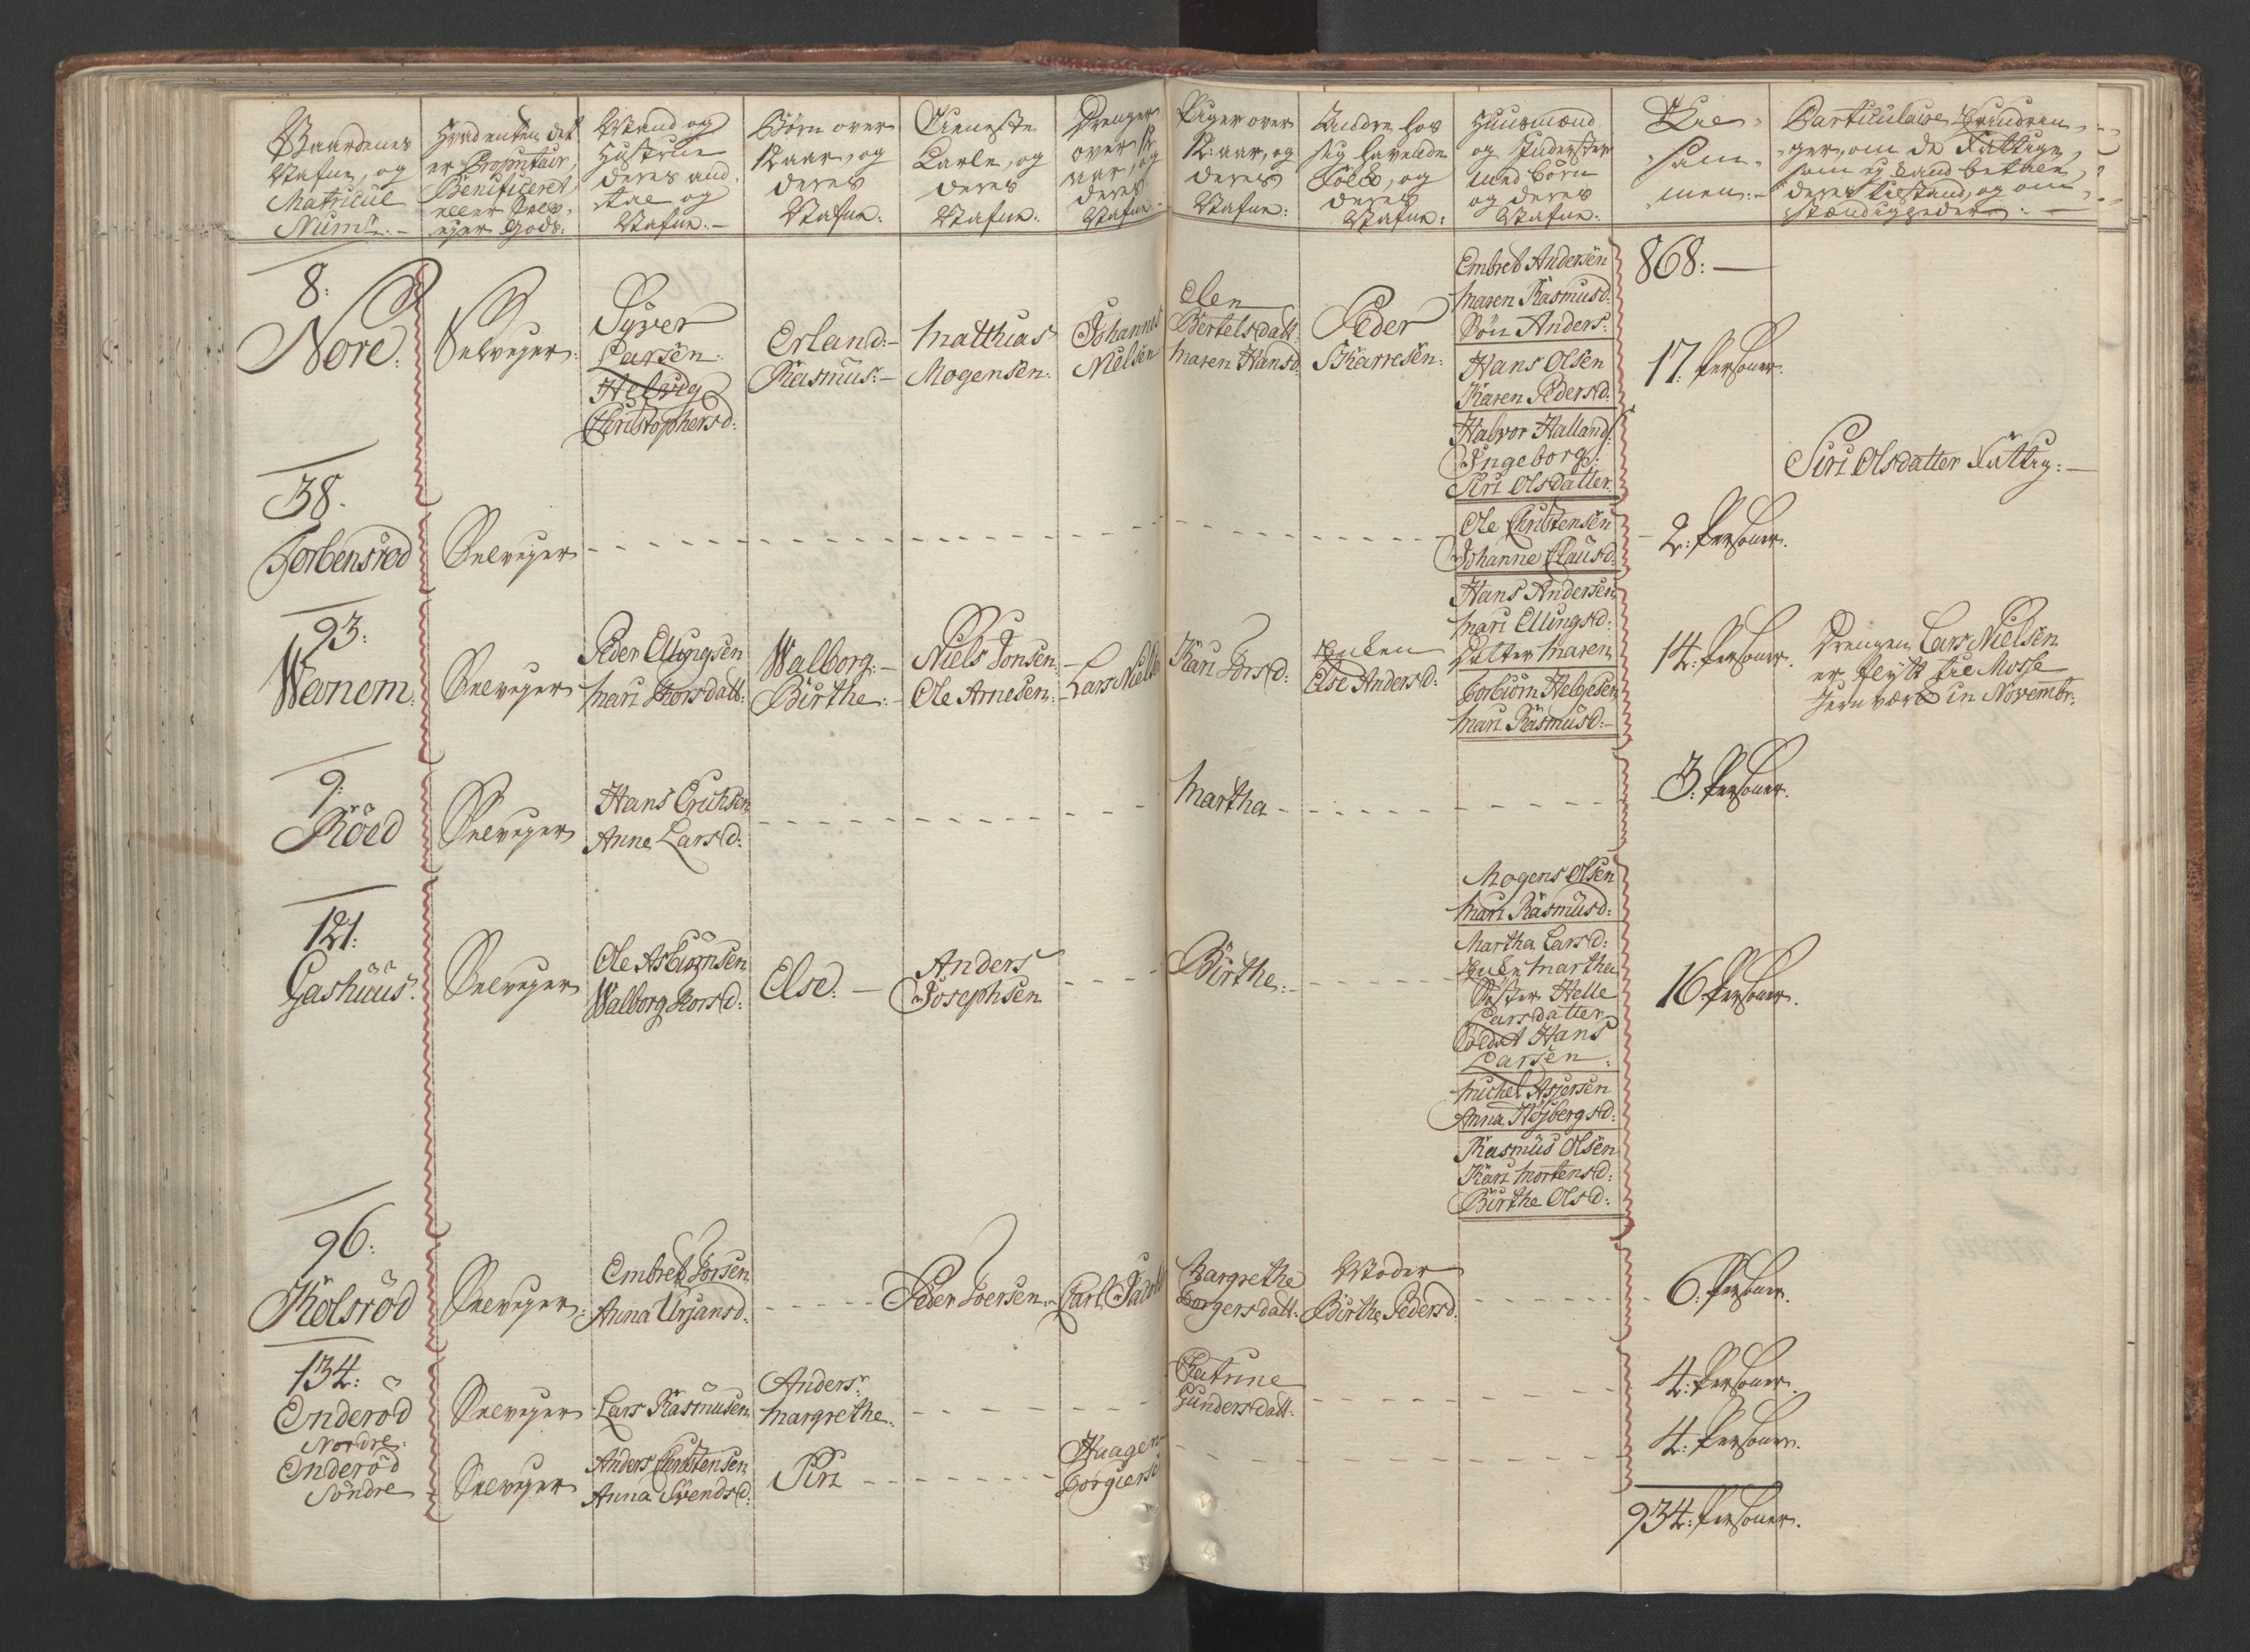 Gaardenes
Nafne, og
Matricul
Num:
Hvad enten det
er Propritair,
Benificeret,
eller Selv-
ejer Gods.
Mand og
Hustrue
deres and-
tal og
Nafne.
Børn over
12 aar, og
deres
Nafne:
Tieneste
Karle, og
deres
Nafne:
Drenger
over 12
aar, og
deres
Nafne
Piger over
12: aar, og
deres
Nafne:
Andre hos
sig havende
Folck, og
deres
Nafne:
Huusmænd
og Inderster
med børn
og deres
Nafne:
Til-
sam-
men:
Particulaire Erindrin-
ger, om de Fattige,
som ej kand betale,
deres tilstand, og om-
stændigheder:
8:
Nore:
Selvejer:
Syver
Larsen
Helvig
Christophersd:
Erland:
Rasmus:
Matthias
Mogensen:
Johannes
Nielsen
Elen
Bertelsdatt:
Maren Hansd:
Peder
Skarresen:
Embret Andersen
Maren Rasmusd:
Søn Anders:
Hans Olsen
Karen Pedersd:
Halvor Halland:
Ingeborg:
Siri Olsdatter:
868:
17: Personer.
Siri Olsdatter Fattig:
38.
Torbensrød
Selvejer
Ole Christensen
Johanne Clausd:
2: Personer.
93:
Wanem:
Selvejer
Peder Ellingsen
Mari Thorsdatt:
Walborg:
Birthe:
Niels Jonsen:
Ole Arnesen:
Lars Niels
Kari Jorsd:
Enken
Else Andersd:
Hans Andersen
Mari Ellingsd:
Datter Maren
Torbiørn Helgesen
Mari Rasmusd:
14: Personer.
Drengen Lars Nielsen
er flytt til Mosse
Jernværk in Novembr:
9:
Röed
Selvejer
Hans Erichsen
Anne Larsd:
Martha
3: Personer.
121:
Gashuus:
Selvejer
Ole Asbiørnsen
Walborg Thorsd:
Else:
Anders
Josephsen
Birthe:
Mogens Olsen
Mari Rasmusd:
Martha Larsd:
Enke Martha
Søster Helle
Larsdatter
Soldat Hans
Larsen:
Michel Asjersen
Anna Højbergsd:
Rasmus Olsen
Kari Mortensd:
Birthe Olsd:
16 Personer.
96:
Kølsrød
Selvejer:
Embret Jorsen
Anna Urjansd:
Peder Joersen
Carl Jacob
Margrethe
Borgersdatt:
Moder
Birthe Pedersd:
6: Personer.
134:
Enderød
Nordre:
Selvejer
Lars Rasmusen
Anders:
Margrethe:
Catrine
Gundersdatt:
4: Personer.
Enderød
Söndre
Selvejer
Anders Christensen
Anna Svendsd:
Siri
Haagen
Torgiers
4: Personer.
934: Personer.